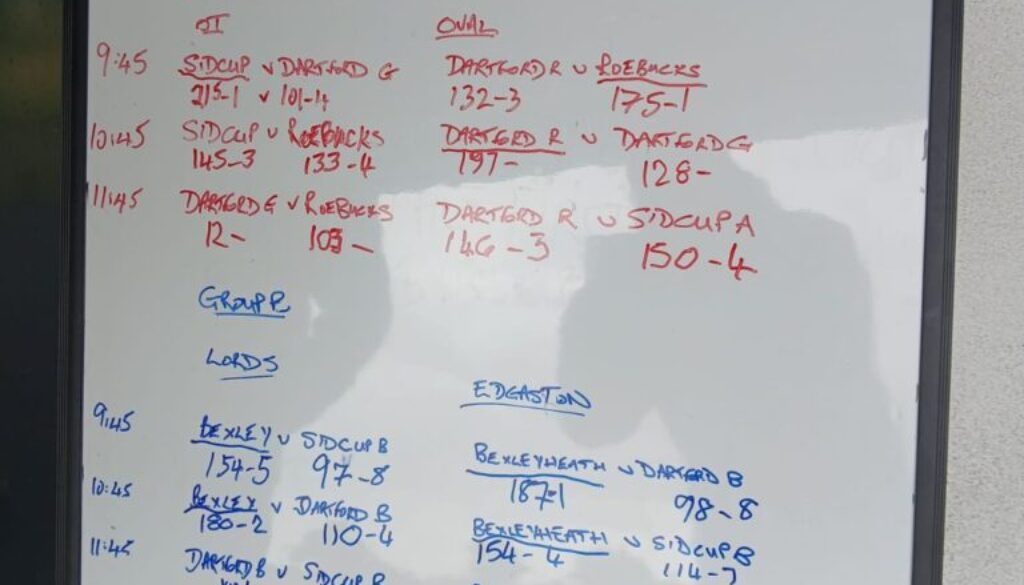 OVAL
9:45 SIDCUP v DARTFORD G DARTFORD R v ROEBUCKS
215-1 v 101-4 132-3 175-1
10:45 SIDCUP v ROEBUCKS DARTFORD R v DARTFORD G
145-3 133-4 197- 128-
11:45 DARTFORD G v ROEBUCKS DARTFORD R v SIDCUP A
12- 103- 146-3 150-4
GROUP
LORDS
EDGASTON
9:45 BEXLEY v SIDCUP B
154-5 97-8
BEXLEYHEATH v DARTFORD B
187-1 98-8
10:45 BEXLEY v DARTFORD B
180-2 110-4
BEXLEYHEATH v SIDCUP B
154-4
11:45 DARTFORD B v SIDCUP B